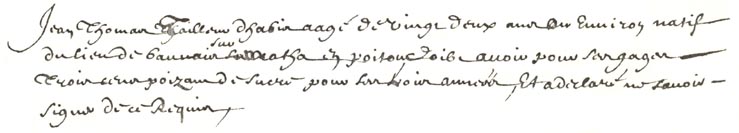 Jean Thomas Tailleur dhabis aagé de vingt deux ans ou Environ natif
du lieu de Sauvais sur matha En poitou, doibt avoir pour ses gages
Trois cens poizan de sucre pour ses trois années, Et a declaré ne scavoir
signer de ce Requis,